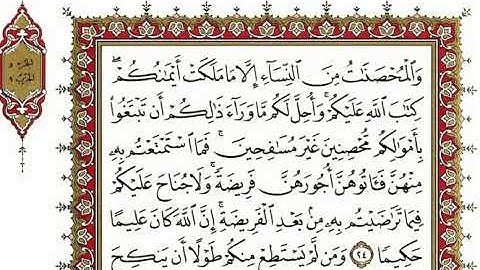 الجزء ٥
الحزب ٩
وَٱلْمُحْصَنَٰتُ مِنَ ٱلنِّسَآءِ إِلَّا مَا مَلَكَتْ أَيْمَٰنُكُمْ ۖ
كِتَٰبَ ٱللَّهِ عَلَيْكُمْ ۚ وَأُحِلَّ لَكُم مَّا وَرَآءَ ذَٰلِكُمْ أَن تَبْتَغُوا۟
بِأَمْوَٰلِكُم مُّحْصِنِينَ غَيْرَ مُسَٰفِحِينَ ۚ فَمَا ٱسْتَمْتَعْتُم بِهِۦ
مِنْهُنَّ فَـَٔاتُوهُنَّ أُجُورَهُنَّ فَرِيضَةً ۚ وَلَا جُنَاحَ عَلَيْكُمْ
فِيمَا تَرَٰضَيْتُم بِهِۦ مِنۢ بَعْدِ ٱلْفَرِيضَةِ ۚ إِنَّ ٱللَّهَ كَانَ عَلِيمًا
حَكِيمًا ٢٤ وَمَن لَّمْ يَسْتَطِعْ مِنكُمْ طَوْلًا أَن يَنكِحَ